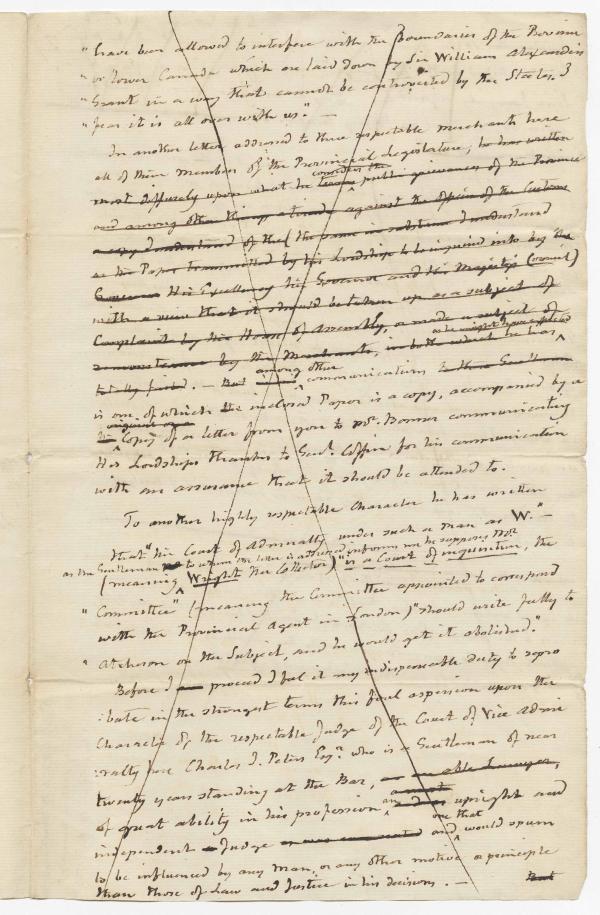 " have been allowed to interfere with the boundaries of the Province
" or Lower Canada which are laid down by Sir William Alexanders
" Grant in a way that cannot be controverted by the States. I
" fear it is all over with us." —
In another letter addressed to three respectable merchants here
all of them members of the Provincial Legislature, he has written
most diffusely upon what he considers the public grievances of the Province
and among other things against the Officers of the Customs
a copy I understand of the (the same in substance I understand
as the Paper transmitted by his Lordship to be inquired into by the
His Excellency his Governor and his Majestys Council)
with a view that it should be taken up as a subject of
Complaint by the House of Assembly, or made a subject of
remonstrance by the Merchants, in both which he has
as he might have expected
totally failed. — But among other communications to these Gentlemen
is one of which the inclosed Paper is a copy, accompanied by a
Copy of a letter from you to Mr. Bonner communicating
His Lordships thanks to Genl. Coffin for his communication
with an assurance that it should be attended to.
To another highly respectable Character he has written
that "the Court of Admiralty under such a man as W." —
as the Gentleman to whom the letter is addressed informs me he supposes Mr.
(meaning Wright the Collector) "is a Court of inquisition, the
" Committee" (meaning the Committee appointed to correspond
with the Provincial Agent in London) "should write fully to
" Atcheson on the Subject, and he would get it abolished."
Before I proceed I feel it my indispensable duty to repro
:bate in the strongest terms this foul aspersion upon the
Character of the respectable Judge of the Court of Vice Admi
:ralty here Charles J. Peters Esqr. who is a Gentleman of near
twenty years standing at the Bar, an able Lawyer,
of great ability in his profession an upright and
independent Judge and one that would spurn
to be influenced by any Man, or any other motive or principle
than those of Law and Justice in his decisions. — But